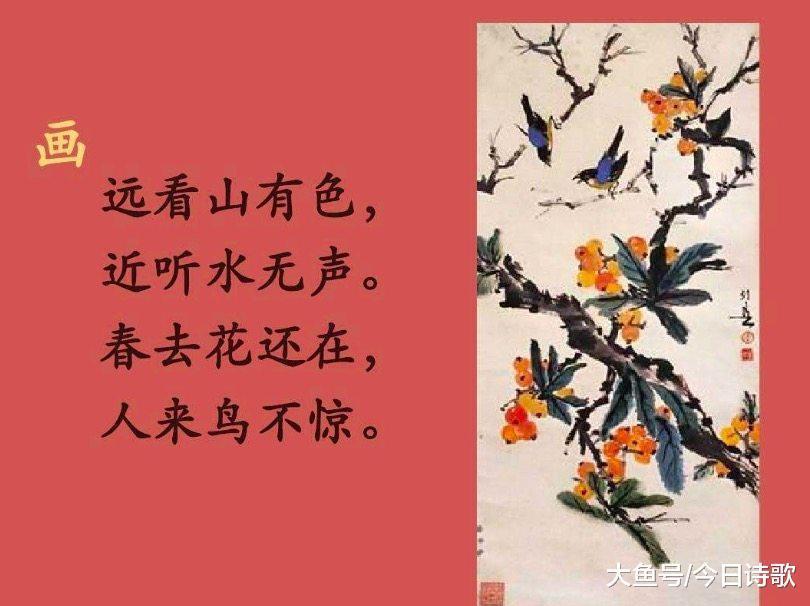 画
远看山有色，
近听水无声。
春去花还在，
人来鸟不惊。
大鱼号/今日诗歌